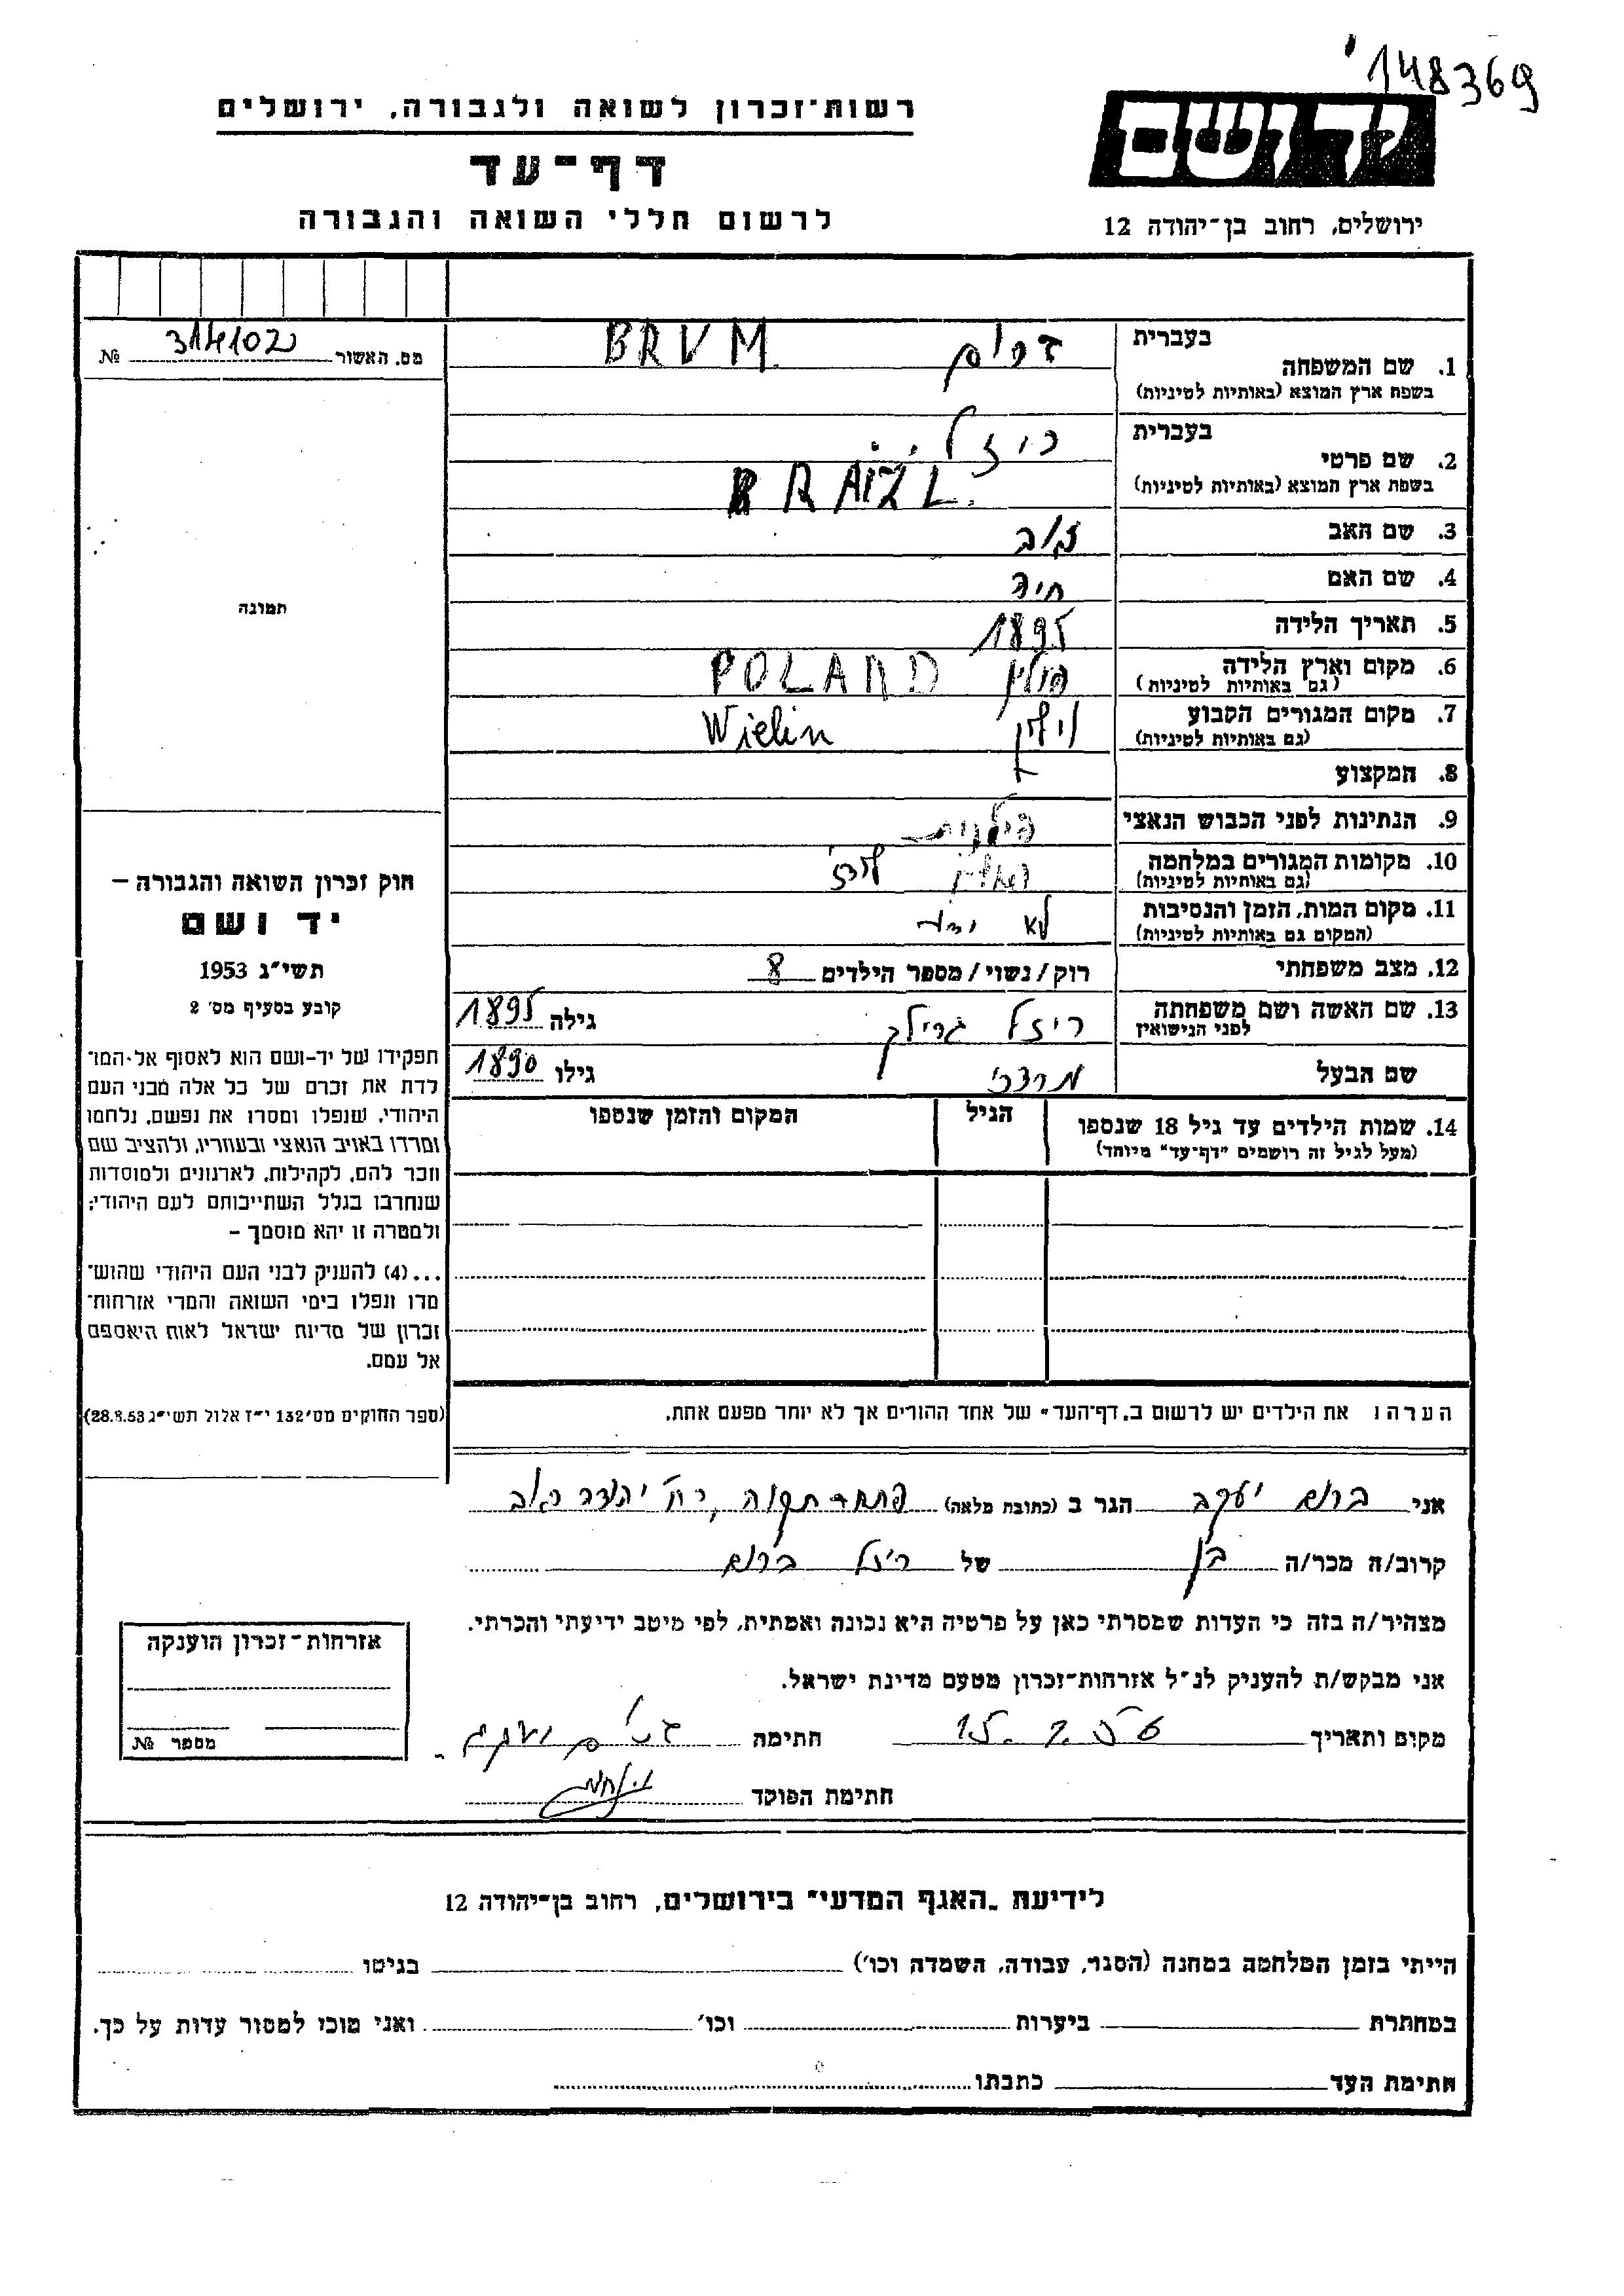 148369
רשות־זכרון לשואה ולגבורה, ירושלים
יד ושם
דף־עד
לרשום חללי השואה והגבורה
ירושלים, רחוב בן־יהודה 12
בעברית
1. שם המשפחה ברום BRUM
בשפת ארץ המוצא (באותיות לטיניות)
מס. האשור 314102 №
בעברית
2. שם פרטי ריזל
בשפת ארץ המוצא (באותיות לטיניות) RAIZL
3. שם האב
4. שם האם חיה
5. תאריך הלידה 1895
6. מקום וארץ הלידה פולין POLAND
(גם באותיות לטיניות)
7. מקום המגורים הקבוע Wielin
(גם באותיות לטיניות)
8. המקצוע
9. הנתינות לפני הכבוש הנאצי פולנית
10. מקומות המגורים במלחמה
(גם באותיות לטיניות)
11. מקום המות, הזמן והנסיבות לא ידוע
(המקום גם באותיות לטיניות)
12. מצב משפחתי רוק/נשוי/מספר הילדים 8
13. שם האשה ושם משפחתה ריזל גילה 1895
לפני הנישואין
שם הבעל מרדכי גילו 1890
14. שמות הילדים עד גיל 18 שנספו הגיל המקום והזמן שנספו
(מעל לגיל זה רושמים "דף־עד" מיוחד)
הערה: את הילדים יש לרשום ב„דף־העד" של אחד ההורים אך לא יותר מפעם אחת.
תמונה
חוק זכרון השואה והגבורה –
יד ושם
תשי"ג 1953
קובע בסעיף מס' 2
תפקידו של יד־ושם הוא לאסוף אל־המו־
לדת את זכרם של כל אלה מבני העם
היהודי, שנפלו ומסרו את נפשם, נלחמו
ומרדו באויב הנאצי ובעוזריו, ולהציב שם
וזכר להם, לקהילות, לארגונים ולמוסדות
שנחרבו בגלל השתייכותם לעם היהודי;
ולמטרה זו יהא מוסמך –
...(4) להעניק לבני העם היהודי שהוש־
מדו ונפלו בימי השואה והמרי אזרחות־
זכרון של מדינת ישראל לאות היאספם
אל עמם.
(ספר החוקים מס' 132 י"ז אלול תשי"ג 28.8.53)
אני ברום יעקב הגר ב (כתובת מלאה) פתח תקוה, רח' יהודה
קרוב/ה מכר/ה בן של ריזל ברום
מצהיר/ה בזה כי העדות שמסרתי כאן על פרטיה היא נכונה ואמתית, לפי מיטב ידיעתי והכרתי.
אני מבקש/ת להעניק לנ"ל אזרחות־זכרון מטעם מדינת ישראל.
מקום ותאריך 15.7.56 חתימה ברום יעקב
חתימת הפוקד
אזרחות־זכרון הוענקה
מספר №
לידיעת „האגף המדעי" בירושלים, רחוב בן־יהודה 12
הייתי בזמן המלחמה במחנה (הסגר, עבודה, השמדה וכו') בגיטו
במחתרת ביערות וכו' ואני מוכן למסור עדות על כך.
חתימת העד כתבתו